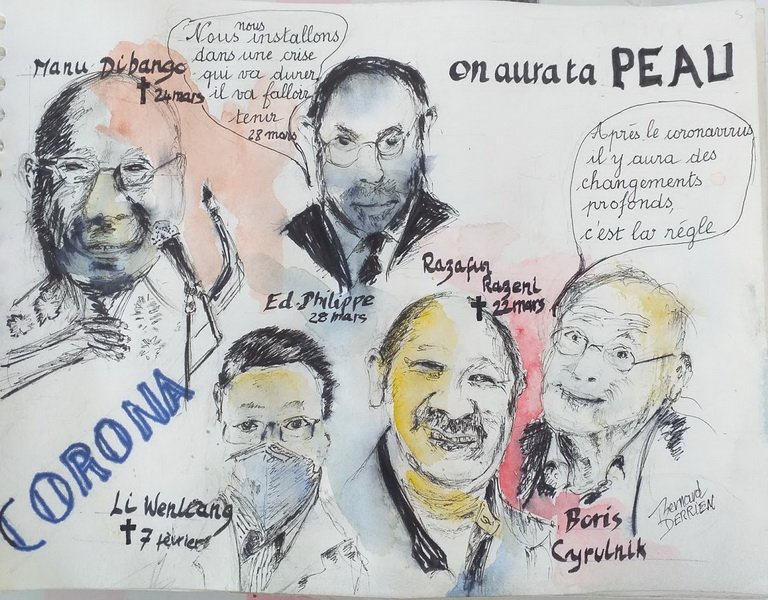 Manu Dibango
✝ 24 mars
nous
Nous installons
dans une crise
qui va durer
il va falloir
tenir
28 mars
on aura ta PEAU
Après le coronavirus
il y aura des
changements
profonds,
c'est la règle
Ed. Philippe
28 mars
Razafin
Razeni
✝ 22 mars
CORONA
Li Wenleang
✝ 7 février
Boris
Cyrulnik
Bernard
DERRIEN